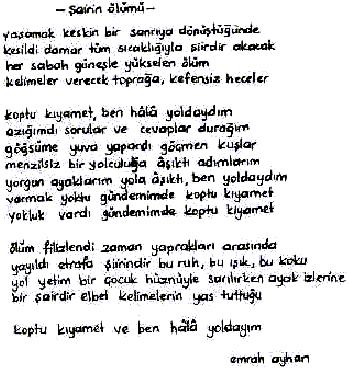 - Şairin ölümü -
yaşamak keskin bir sancıya dönüştüğünde
kesildi damar tüm sıcaklığıyla şiirdir akacak
her sabah güneşle yükselen ölüm
kelimeler verecek toprağa, kefensiz heceler
koptu kıyamet, ben hâlâ yoldaydım
azığımdı sorular ve cevaplar durağım
göğsüme yuva yapardı göçmen kuşlar
menzilsiz bir yolculuğa âşıktı adımlarım
yorgun ayaklarım yola âşıktı, ben yoldaydım
varmak yoktu gündemimde koptu kıyamet
yokluk vardı gündemimde koptu kıyamet
ölüm filizlendi zaman yaprakları arasında
yayıldı etrafa şiirindir bu ruh, bu ışık, bu koku
yol yetim bir çocuk hüznüyle sarılırken ayak izlerine
bir şairdir elbet kelimelerin yas tuttuğu
koptu kıyamet ve ben hâlâ yoldayım
emrah ayhan